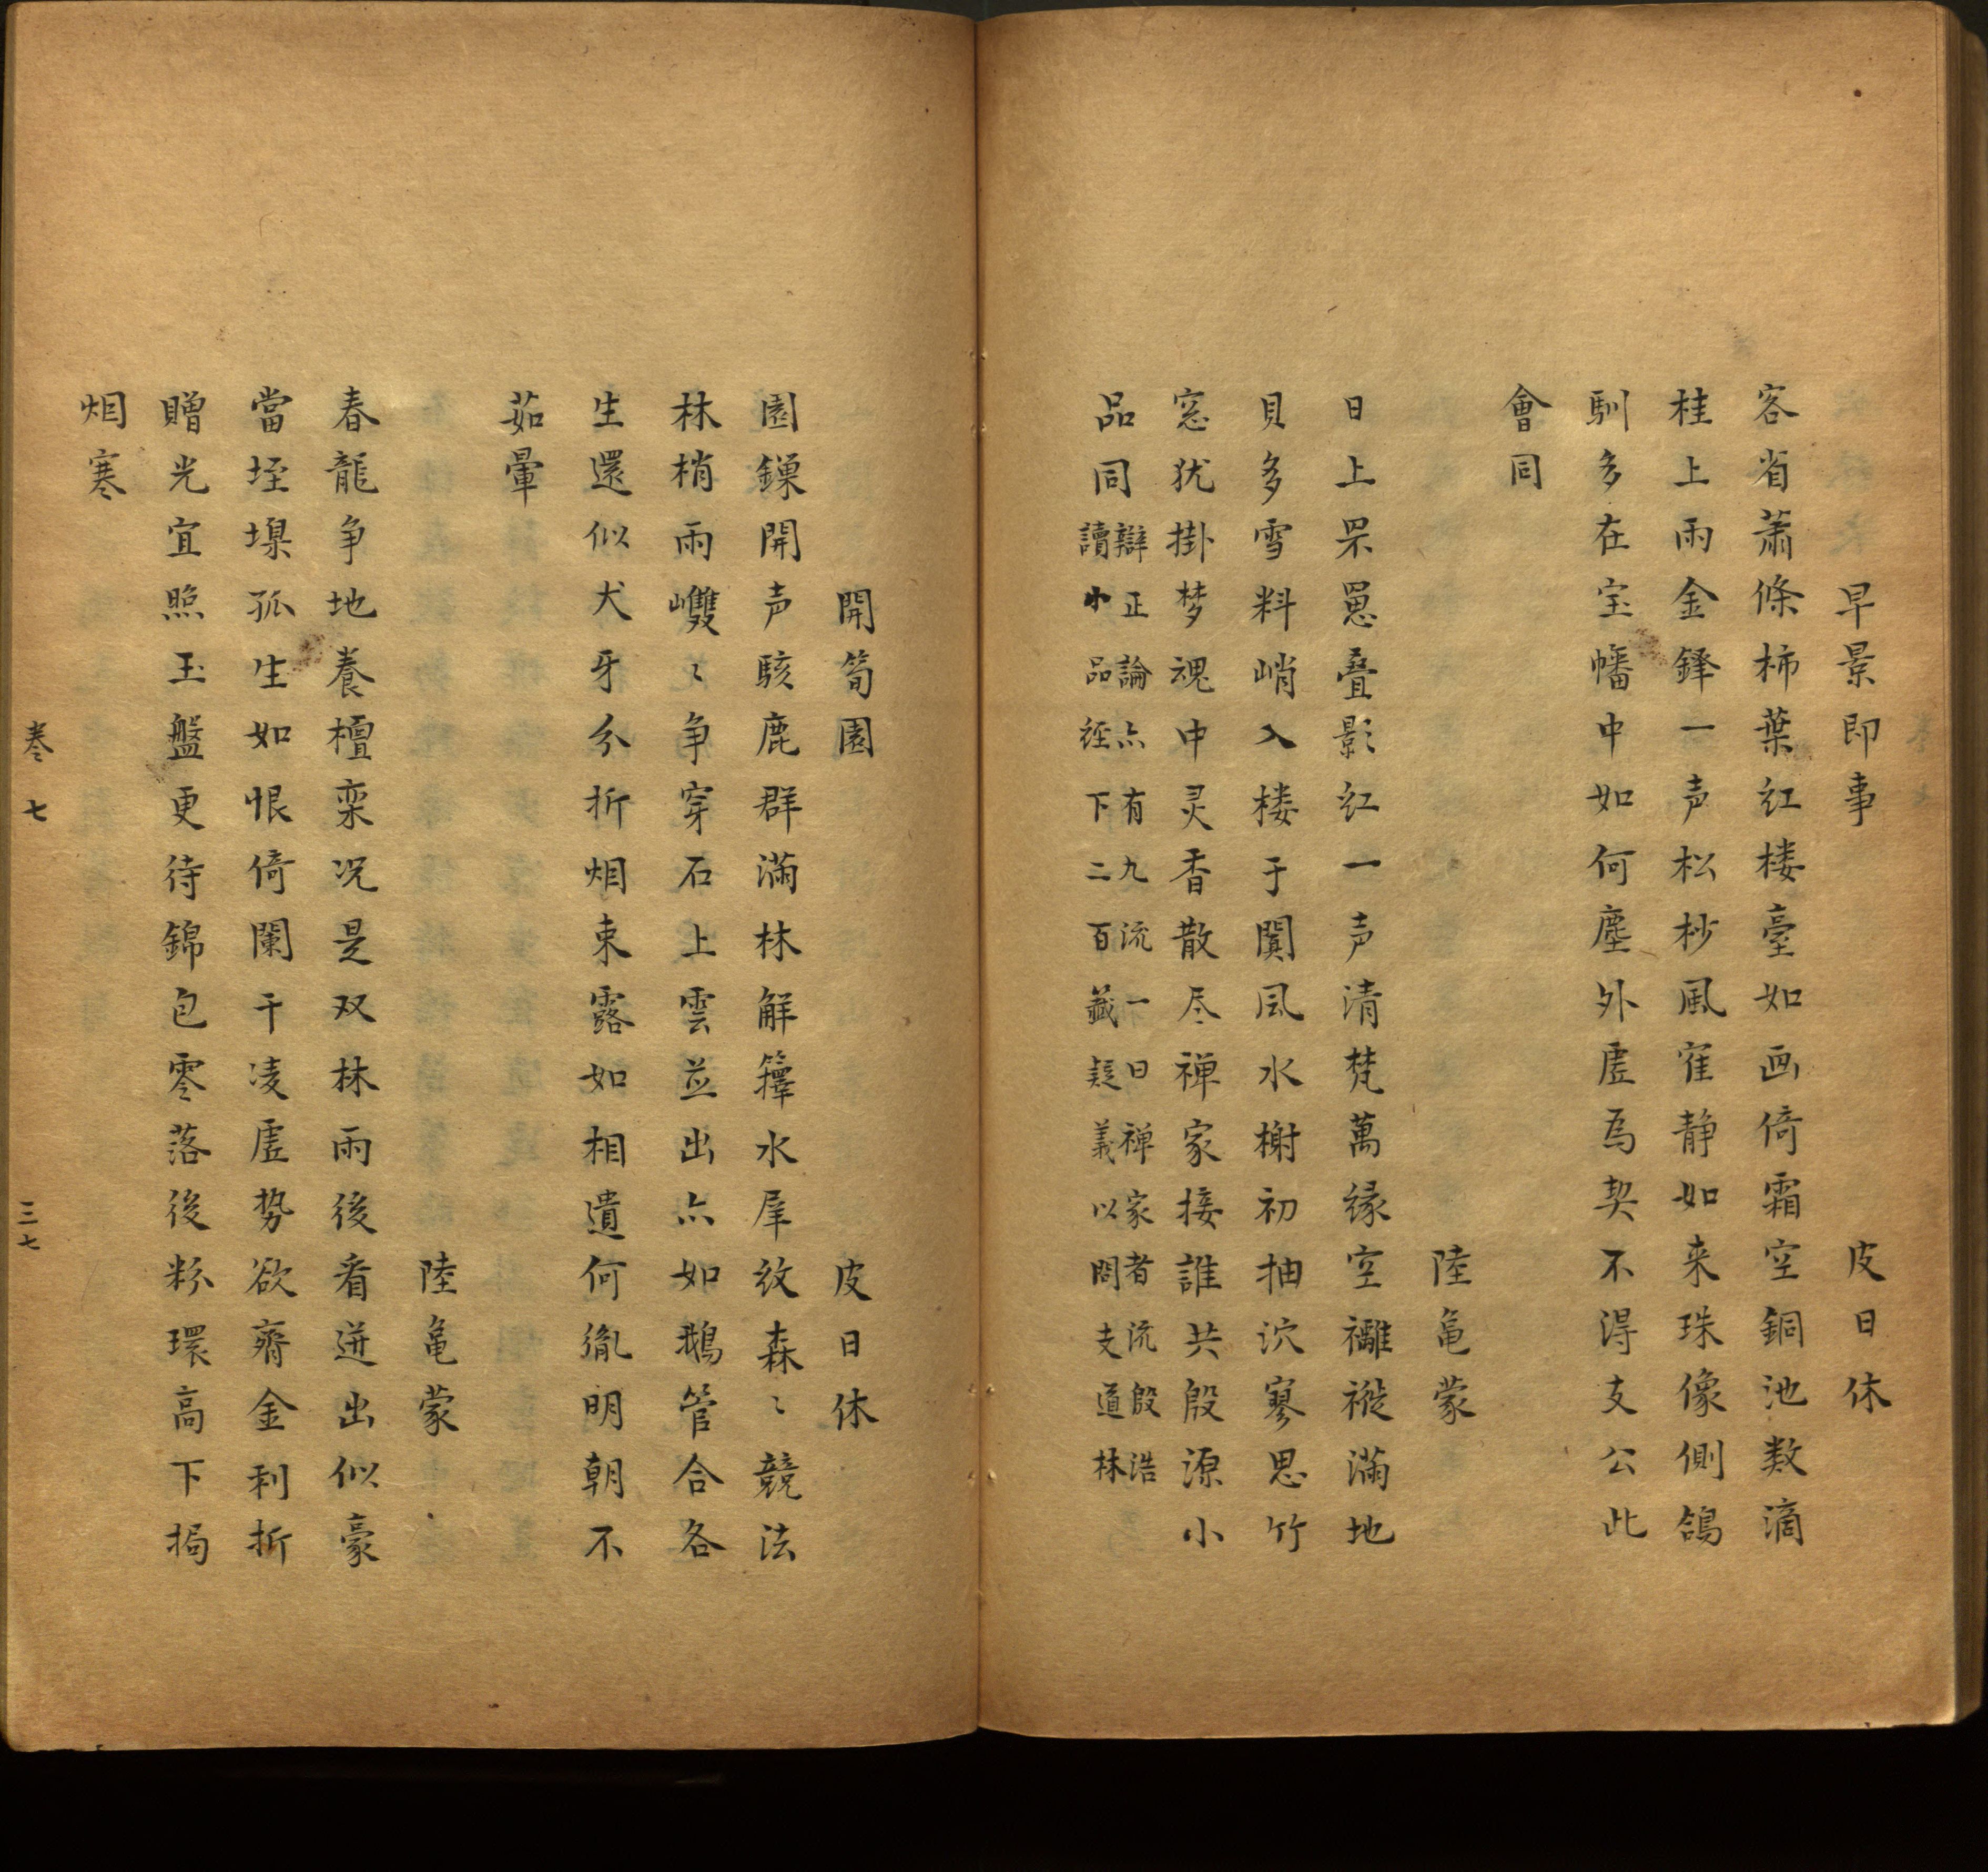 早景即事　皮日休
客省蕭條柿葉紅楼臺如画倚霜空銅池数滴
桂上雨金鐸一声松杪風寉静如来珠像側鴿
馴多在宝幡中如何塵外虗為契不淂支公此
會同
陸亀蒙
日上罘罳叠影红一声清梵萬縁空襹褷滿地
貝多雪料峭入楼于闐風水榭初抽泬寥思竹
窓犹掛梦魂中灵香散尽禅家接誰共殷源小
品同辯正論亦有九流一曰禅家者流殷浩
讀小品經下二百籖疑義以問支道林
開筍園　皮日休
園鏁開声駭鹿群滿林解籜水犀紋森〻競法
林梢雨䉶〻争穿石上雲並出亦如鵝管合各
生還似犬牙分折烟束露如相遺何胤明朝不
茹葷
陸亀蒙
春龍争地養檀栾况是双林雨後看迸出似豪
當垤堁孤生如恨倚闌干凌虗势欲齊金刹折
贈光宜照玉盤更待錦包零落後粉環高下搗
烟寒
卷七
三七